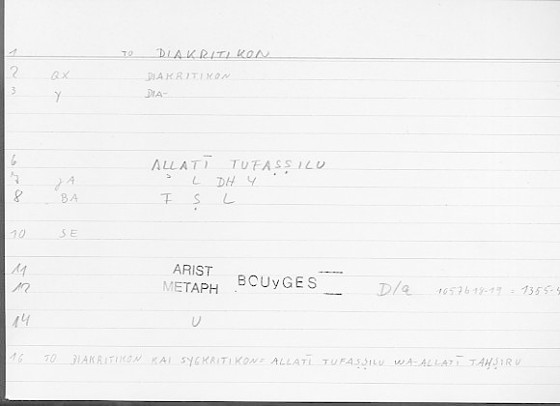 1 TO DIAKRITIKON
2 ax DIAKRITIKON
3 y DIA-
6 ALLATĪ TUFAṢṢILU
7 JA L DH Y
8 BA F Ṣ L
10 SE
11 ARIST BOUyGES
12 METAPH D/a 1057b19 = 1355
14 U
16 TO DIAKRITIKON KAI SYGKRITIKON= ALLATĪ TUFAṢṢILU WA-ALLATĪ TAḤṢIRU